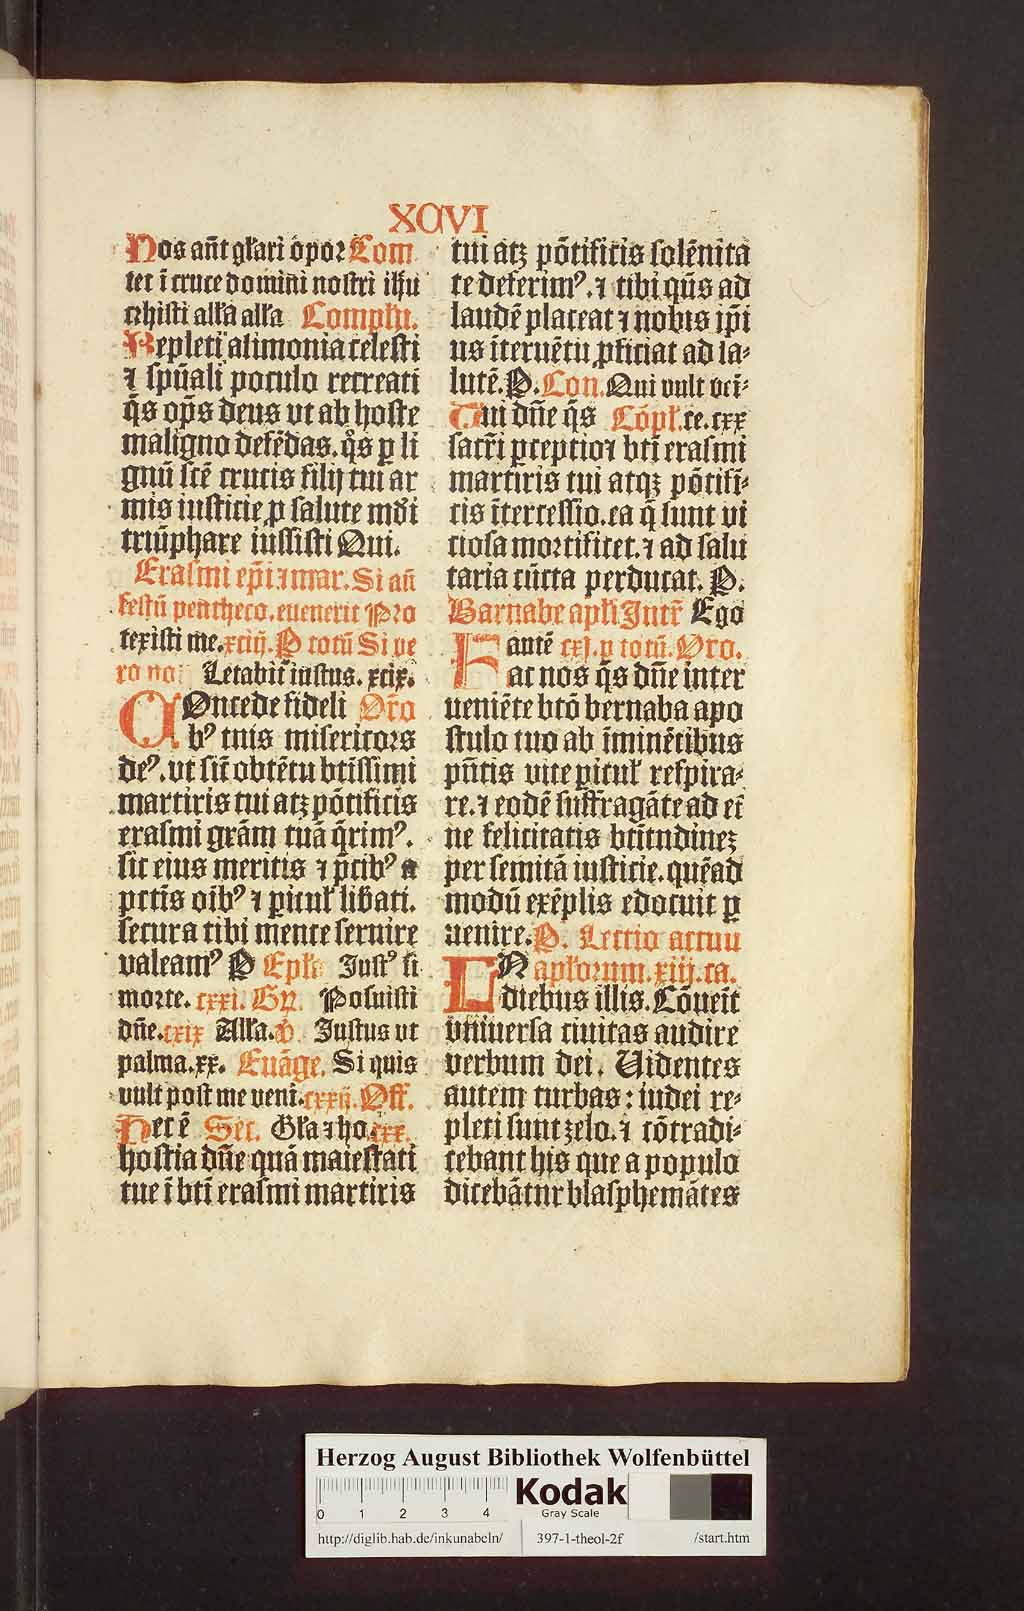 XCVI
Nos aūt gl̄ari opor Com
tet ī cruce domini nostri ihū
christi all̄a all̄a Compl̄n.
Repleti alimonia celesti
⁊ spūali poculo recreati
q̄s op̄s deus vt ab hoste
maligno defēdas. q̊s ꝑ li
gnū scē crucis filij tui ar
mis iusticie ꝓ salute mūdi
triūphare iussisti Qui.
Erasmi ep̄i ⁊ mar. Si aū
festū pentheco. euenerit Pro
texisti me. xciij. P totū Si ve
ro no Letabit̄ iustus. xcix.
COncede fideli Or̄o
bꝰ tuis misericors
deꝰ. vt sic̄ obtētu btīssimi
martiris tui atqꝫ pōtificis
erasmi gr̄am tuā q̄rimꝰ.
sic eius meritis ⁊ p̄cibꝰ a
pctīs oībꝰ ⁊ ꝑicul̄ lib̄ati.
secura tibi mente seruire
valeamꝰ P Epl̄a Justꝰ si
morte. cxxi. Gr̄. Posuisti
dn̄e. cxix All̄a. v̄ Justus vt
palma. xx. Euāge. Si quis
vult post me veni. cxxij. Off.
Hec ē Sec. Gl̄a ⁊ ho. cxx.
hostia dn̄e quā maiestati
tue ī btī erasmi martiris
tui atqꝫ pōtificis solēnita
te deferimꝰ. ⁊ tibi qn̄s ad
laudē placeat ⁊ nobis ip̄i
us īteruētu ꝓficiat ad sa⸗
lutē. P. Con. Qui vult vet̄⸗
Tui dn̄e q̄s Cōpl̄. re. cxx
sacr̄i ꝑceptio ⁊ btī erasmi
martiris tui atqꝫ pōtifi⸗
cis ītercessio. ea q̄ sunt vi
ciosa mortificet. ⁊ ad salu
taria cūcta perducat. P.
Barnabe apl̄i Intr̄ Ego
autē cxj. ꝑ totū. Oro.
Fac nos q̄s dn̄e inter
ueniēte btō bernaba apo
stulo tuo ab īminētibus
pn̄tis vite ꝑicul̄ respira⸗
re. ⁊ eodē suffragāte ad et̄
ne felicitatis btītudineꝫ
per semitā iusticie. quēad
modū exēplis edocuit ꝑ
uenire. P. Lectio actuu
IN apl̄orum. xiij. ca.
diebus illis. Cōueit
vniuersa ciuitas audire
verbum dei. Uidentes
autem turbas: iudei re⸗
pleti sunt zelo. ⁊ cōtradi⸗
cebant his que a populo
dicebātur blasphemātes
Herzog August Bibliothek Wolfenbüttel
0 1 2 3 4
Kodak
Gray Scale
http://diglib.hab.de/inkunabeln/ 397-1-theol-2f /start.htm